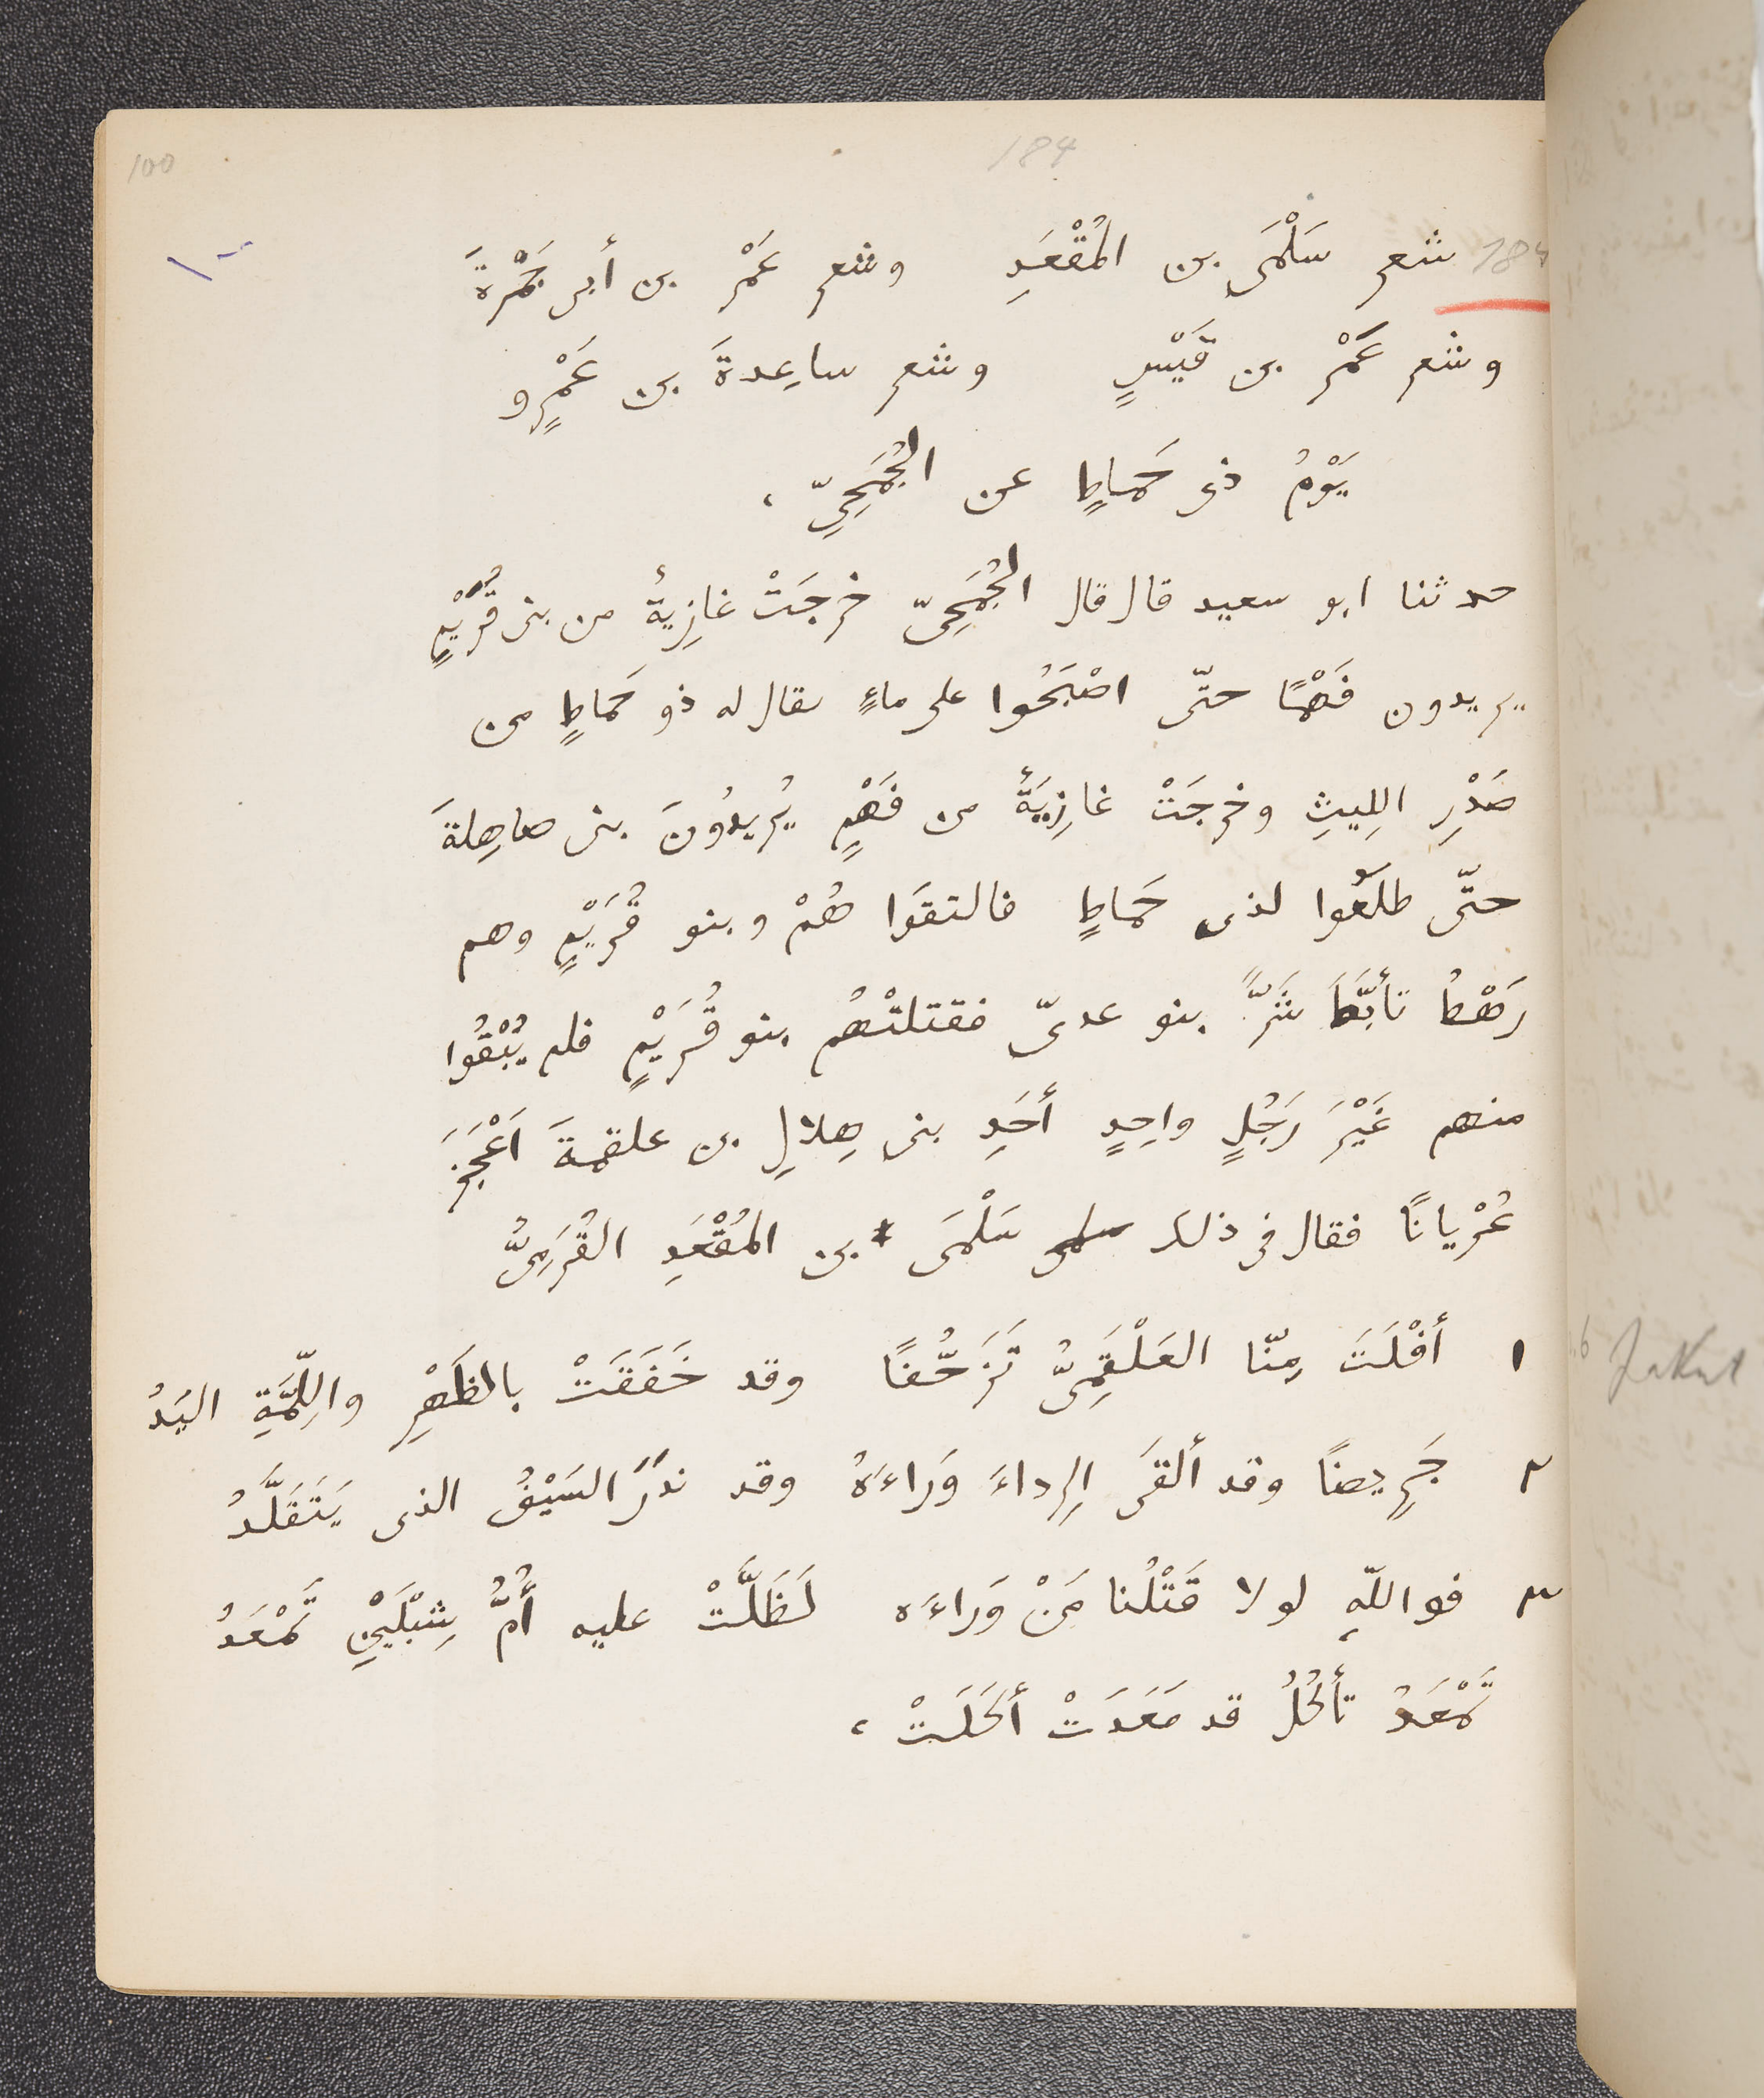 100
184
184 شعر سَلْمَى بن المُقْعَدِ وشعر عَمْر بن أبى جَمْرَةَ
وشعر عَمْر بن قَيْسٍ وشعر ساعِدةَ بن عَمْرٍو
يَوْمُ ذى حَماطٍ عن الجُمَحِىّ ،
حدثنا ابو سعيد قال قال الجُمَحِىّ خرجَتْ غازِيةٌ من بنى قُرَيْمٍ
يريدون فَهْمًا حتّى اصْبَحُوا على ماءٍ يقال له ذو حَماطٍ من
صَدْرِ اللِيثِ وخرجَتْ غازِيَةٌ من فَهْمٍ يُريدُونَ بنى صاهِلةَ
حتّى طلَعُوا لذى حَماطٍ فالتقَوا هُمْ وبنو قُرَيْمٍ وهم
رَهْطُ تأبَّطَ شَرًّا بنو عدىّ فقتلتْهُم بنو قُرَيْمٍ فلم يُبْقُوا
منهم غَيْرَ رَجُلٍ واحِدٍ أحَدِ بنى هِلالِ بن علقمةَ اَعْجَزَ
عُرْيانًا فقال فى ذلك سلمى سَلْمَى بن المُقْعَدِ القُرَمِىُّ
١ أفْلَتَ مِنّا العَلْقَمِىُّ تَزَحُّفًا وقد خَفَقَتْ بالظَهْرِ واللِّمَّةِ اليَدُ
٢ جَرِيضًا وقد ألقَى الرِداءَ وَراءَهُ وقد نَدَرَ السَيْفُ الذى يَتَقَلَّدُ
٣ فواللّهِ لولا قَتْلُنا مَنْ وَراءَه لَظَلَّتْ عليه أُمُّ شِبْلَيْنِ تَمْعَدُ
تَمْعَدُ تأكُلُ قد مَعَدَتْ أكَلَتْ ،